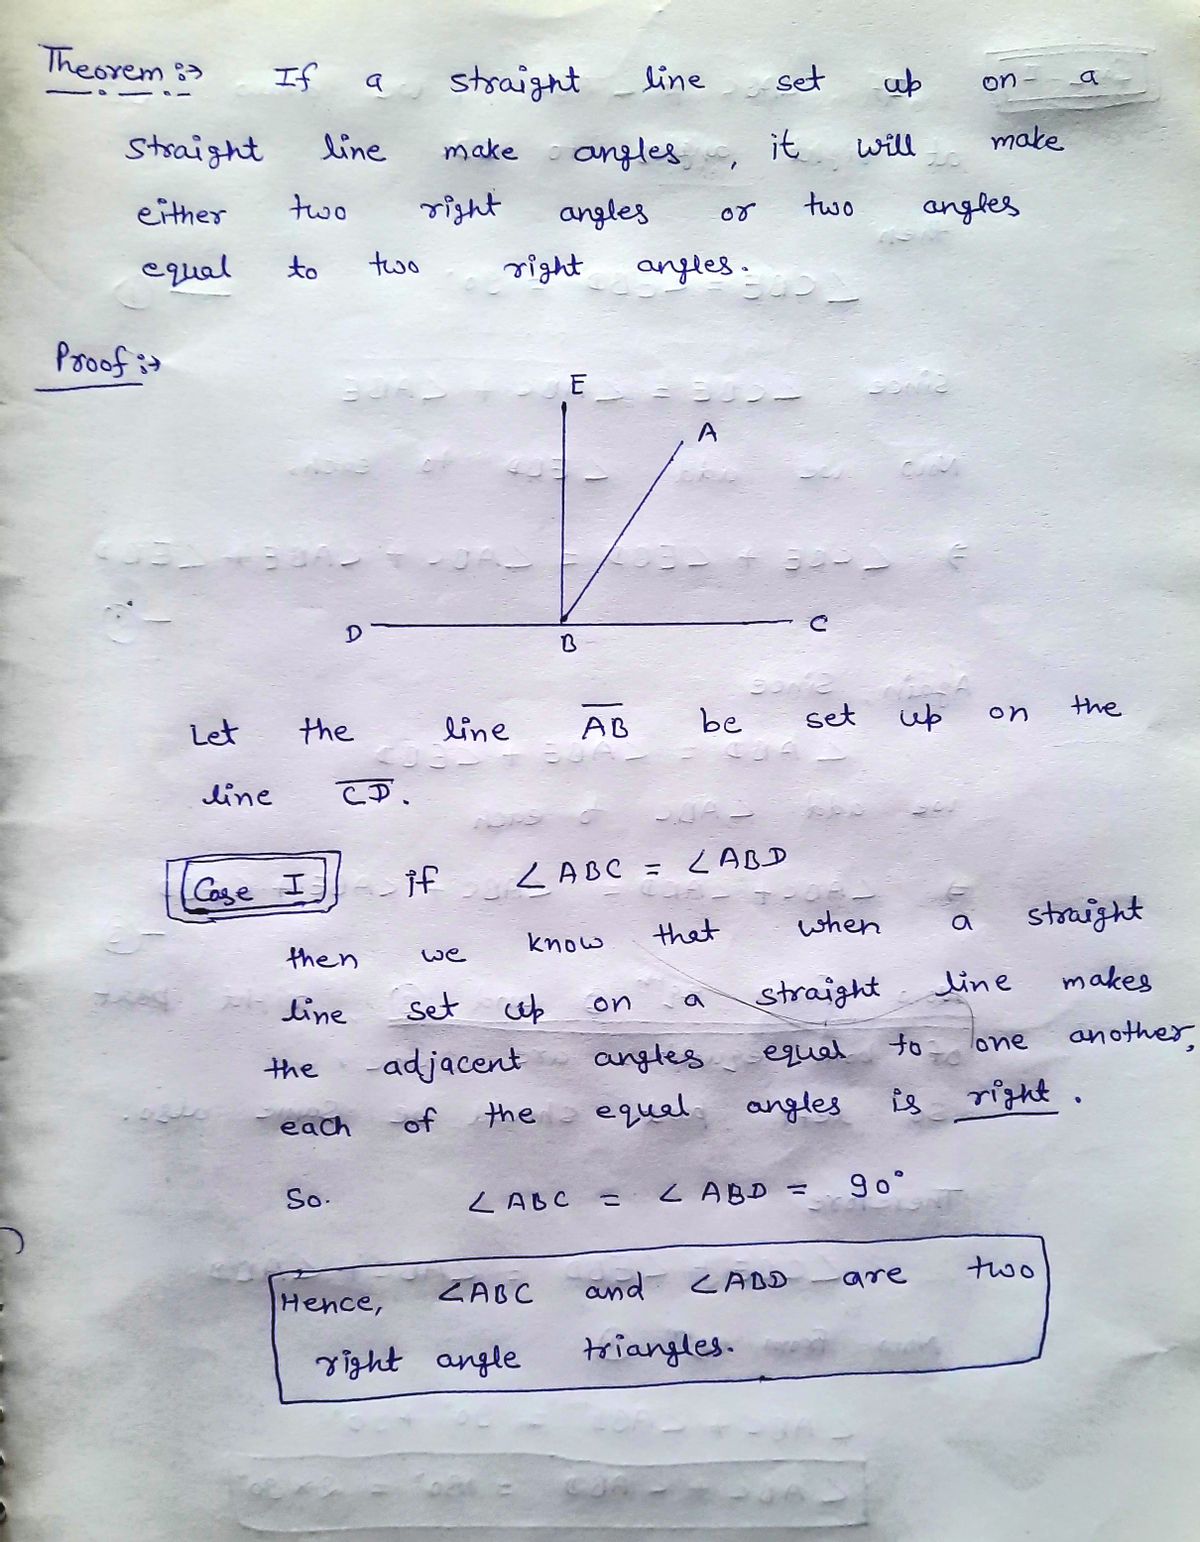 Theorem :→ If a straight line set up on a
straight line make angles, it will make
either two right angles or two angles
equal to two right angles.
Proof :→
E
A
D
B
C
Let the line AB be set up on the
line CD.
Case I if ∠ABC = ∠ABD
then we know that when a straight
line set up on a straight line makes
the adjacent angles equal to one another,
each of the equal angles is right.
So. ∠ABC = ∠ABD = 90°
Hence, ∠ABC and ∠ABD are two
right angle triangles.